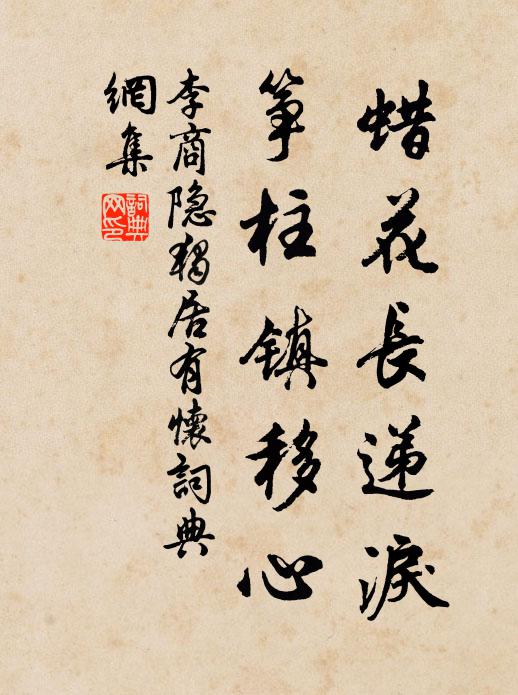 蜡花長递淚
筝柱镇移心
李商隐獨居有懷詞典
網集
詞典
网印